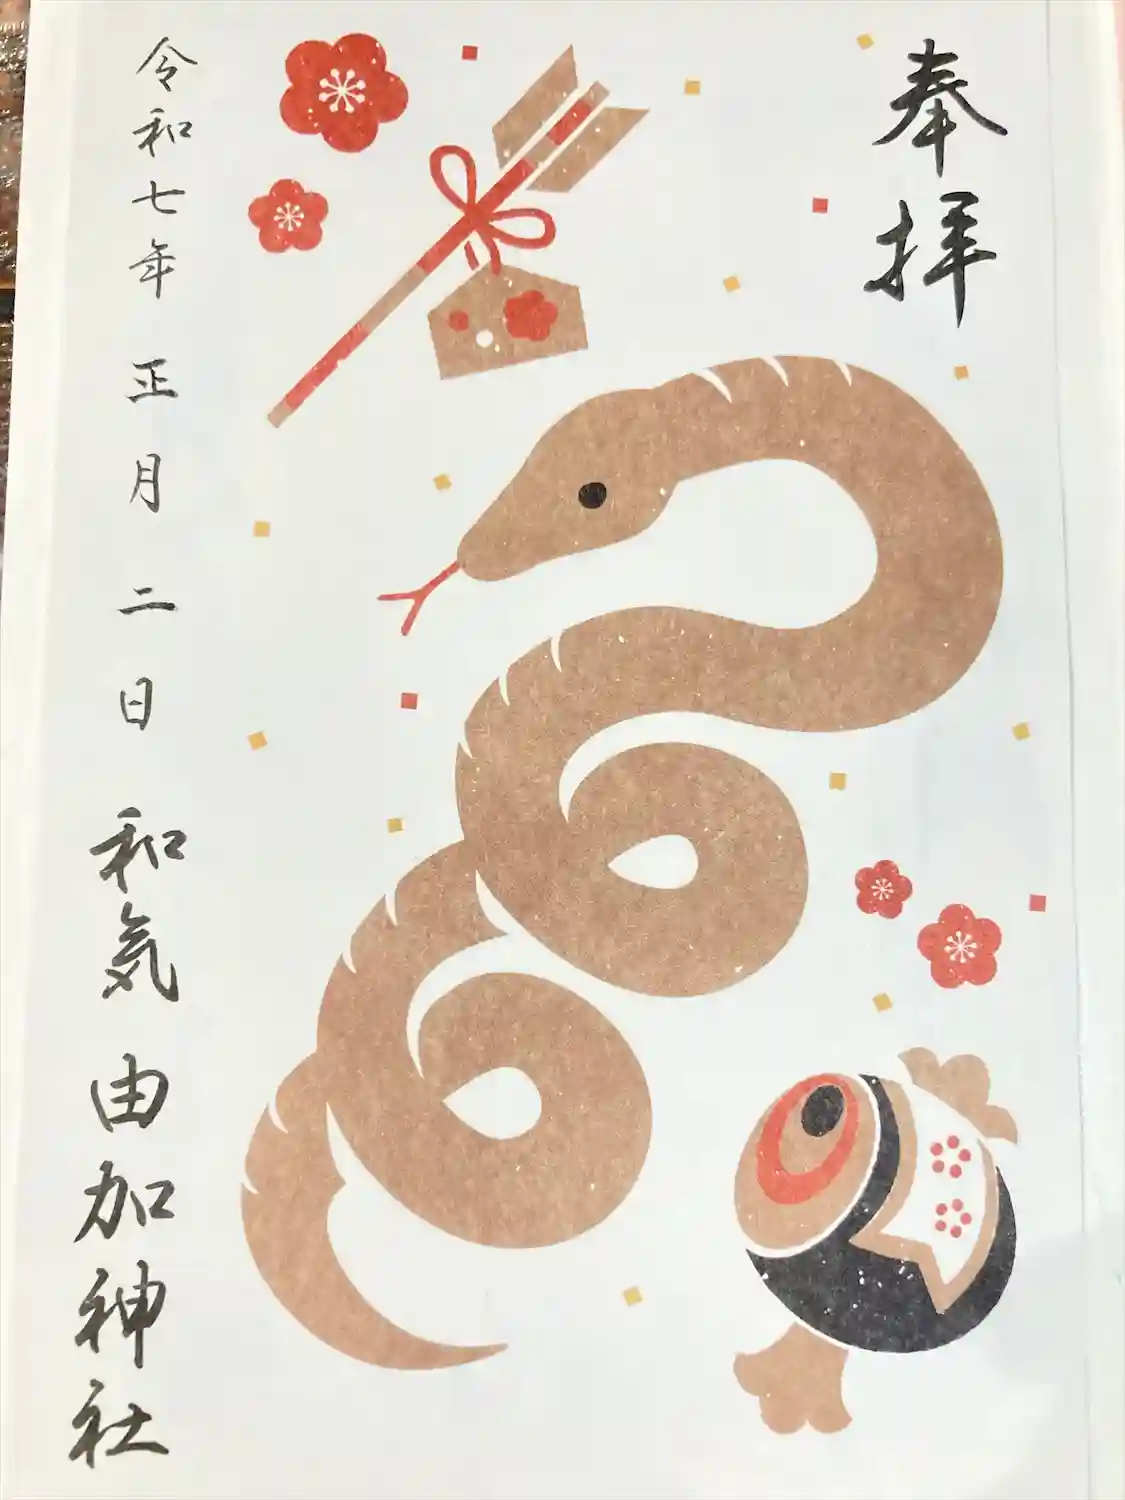 奉拝
令和七年 正月 二日 和気 由加神社